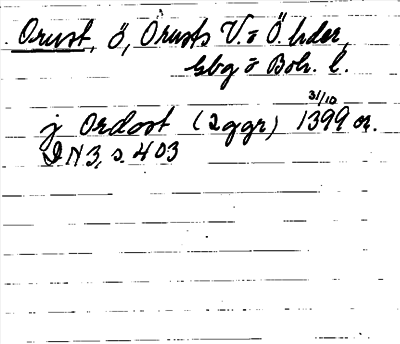 Orust, ö, Orusts V. o Ö hder,
Gbg o Boh. l.
j Ordost (2 ggr) 31/10 1399 or.
DN 3, s. 403